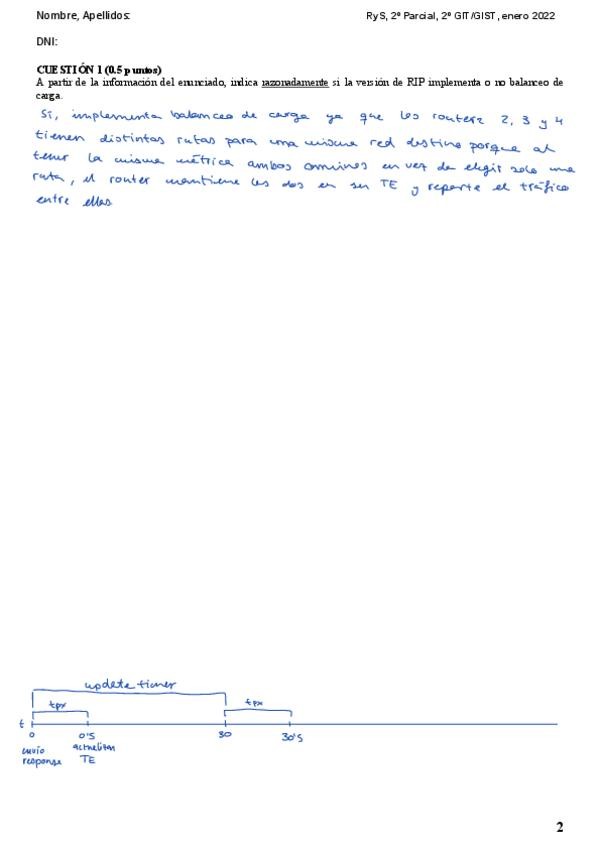 Nombre, Apellidos: RyS, 2º Parcial, 2º GIT/GIST, enero 2022
DNI:
CUESTIÓN 1 (0.5 puntos)
A partir de la información del enunciado, indica razonadamente si la versión de RIP implementa o no balanceo de
carga.
Sí, implementa balanceo de carga ya que los routers 2, 3 y 4
tienen distintas rutas para una misma red destino porque al
tener la misma métrica ambos caminos en vez de elegir solo una
ruta, el router mantiene las dos en su TE y reparte el tráfico
entre ellas
update timer
tpx tpx
t
0 0'5 30 30'5
envío actualizan
response TE
2